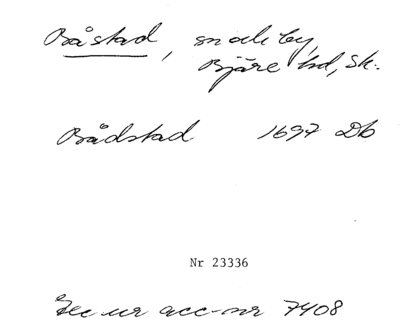 Båstad, sn och by,
Bjäre hd, Sk.
Bådstad 1697 Db
Nr 23336
Exc ur acc-nr 7408